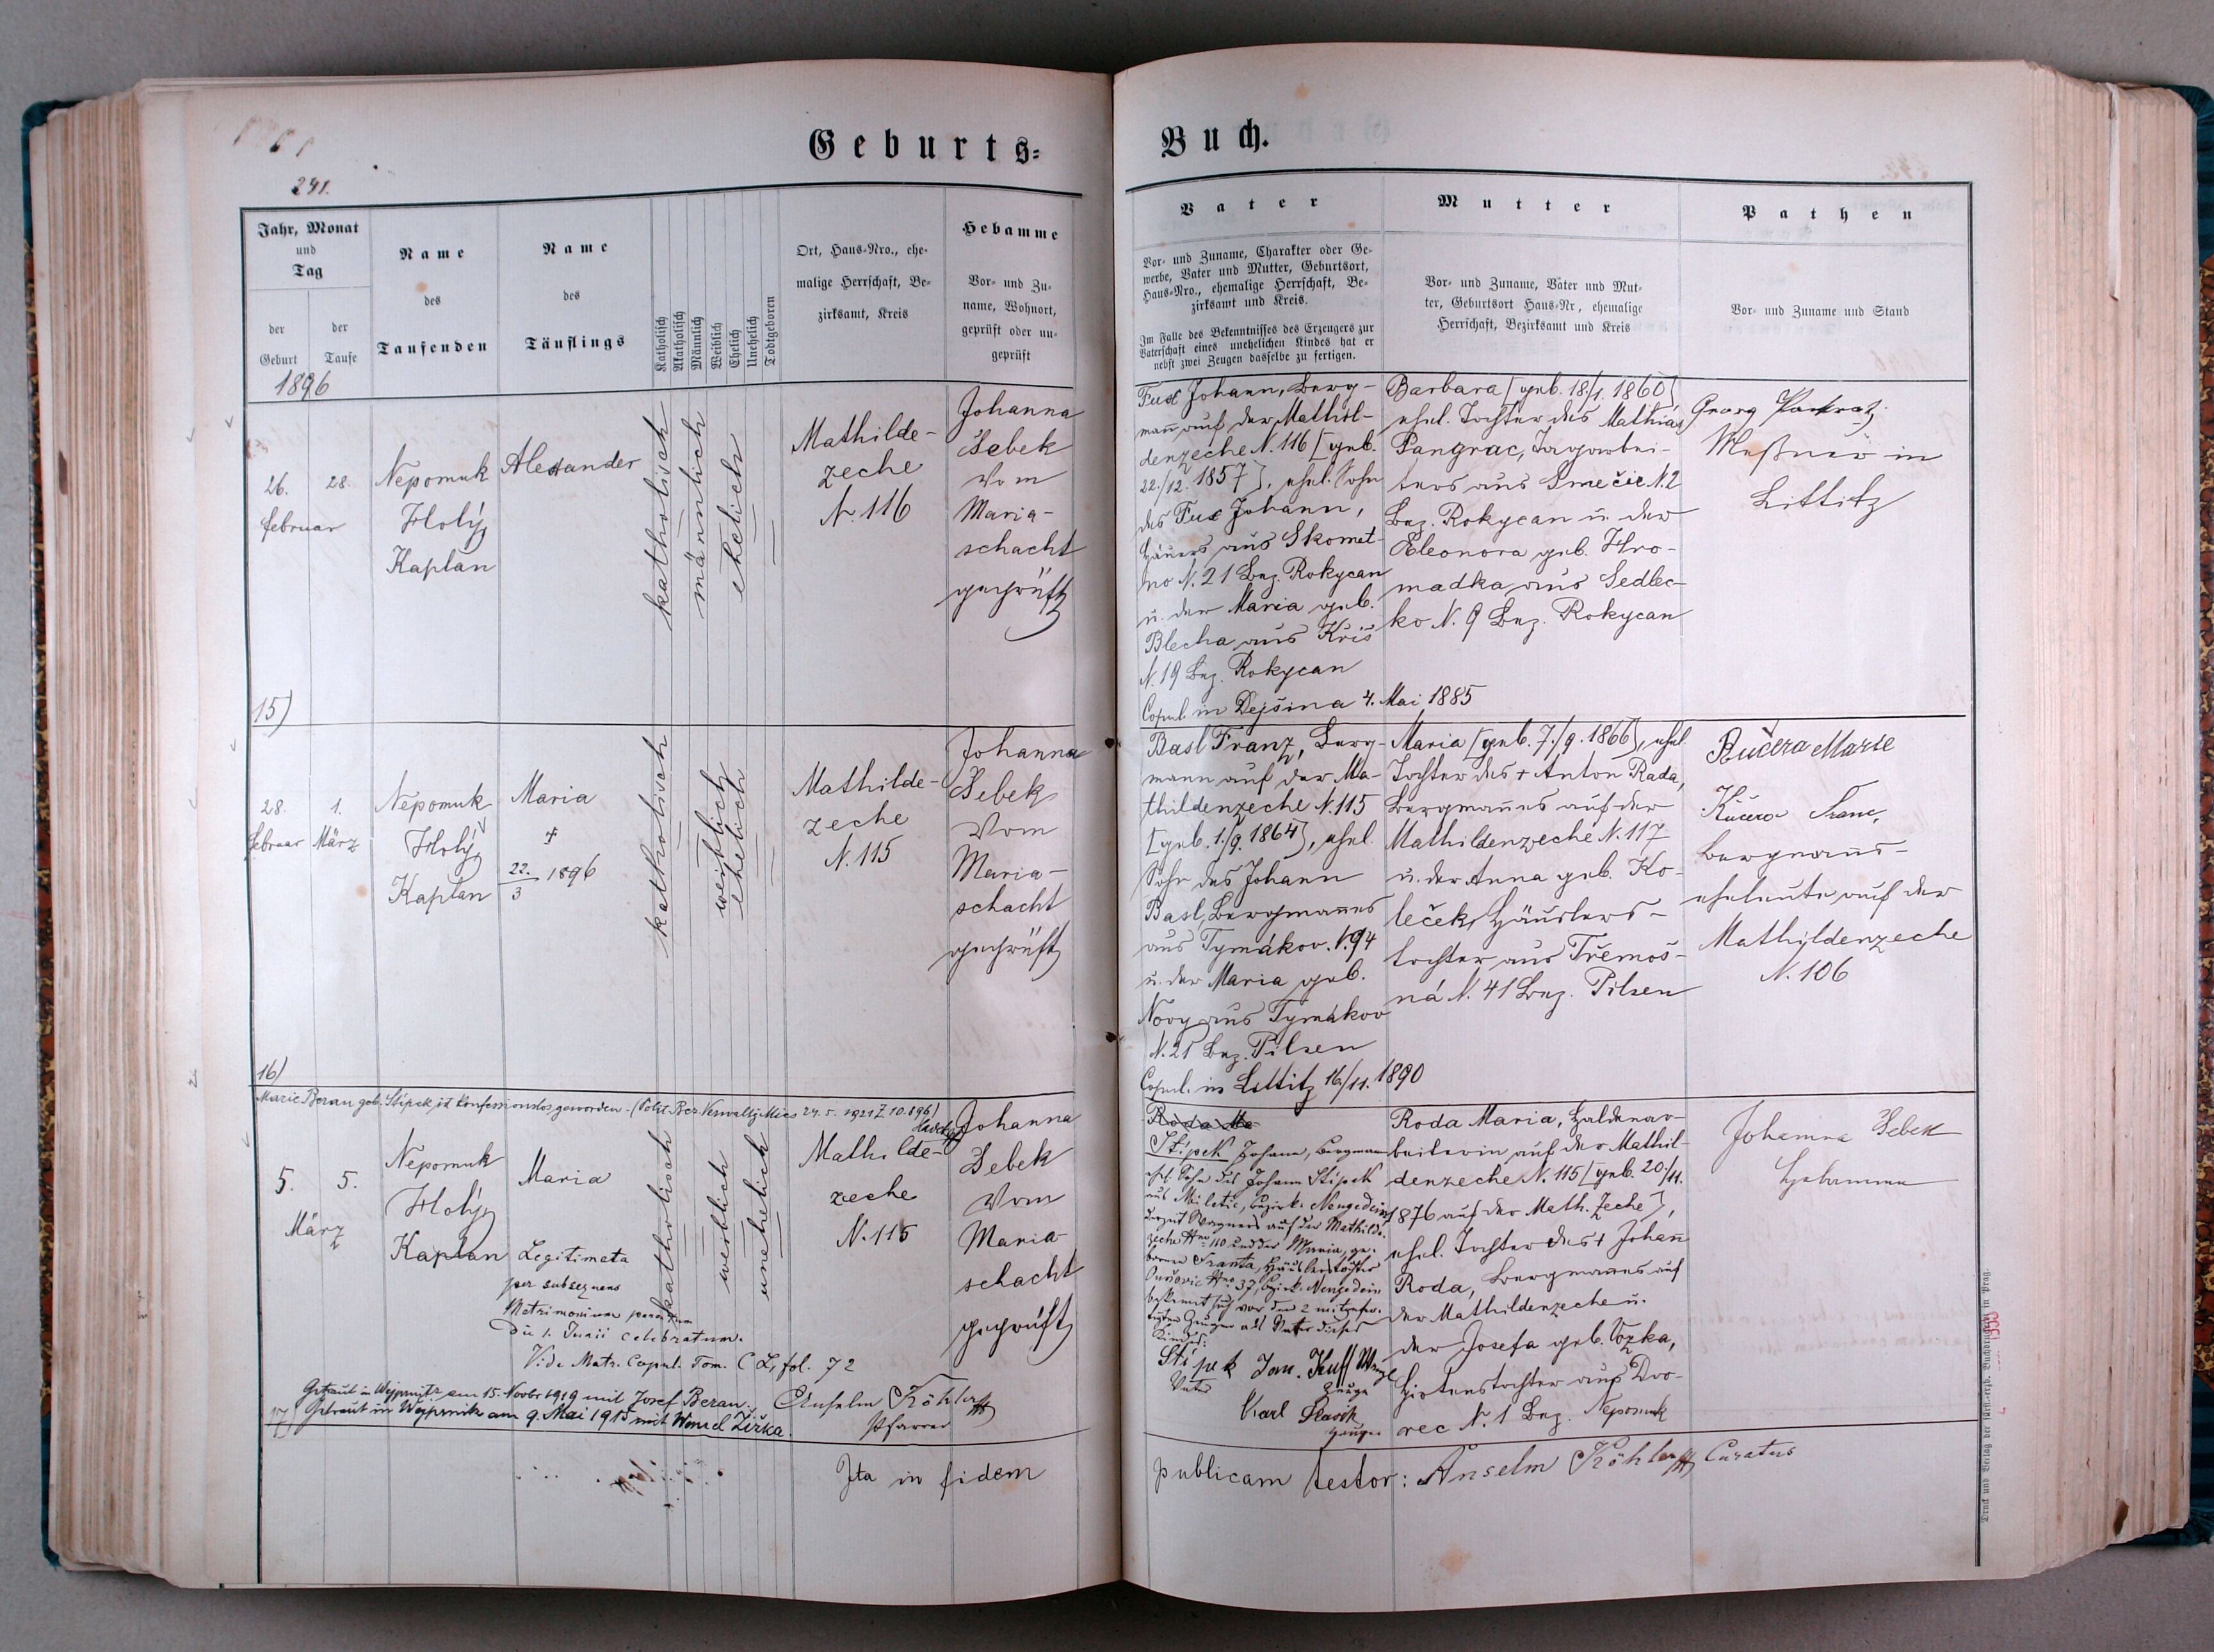 Geburts-
Buch.
241.
Jahr, Monat
und
Tag
der
Geburt
der
Taufe
Name
des
Taufenden
Name
des
Täuflings
Katholisch
Akatholisch
Männlich
Weiblich
Ehelich
Unehelich
Todtgeboren
Ort, Haus-Nro., ehe-
malige Herrschaft, Be-
zirksamt, Kreis
Hebamme
Vor- und Zu-
name, Wohnort,
geprüft oder un-
geprüft
Vater
Vor- und Zuname, Charakter oder Ge-
werbe, Vater und Mutter, Geburtsort,
Haus-Nro., ehemalige Herrschaft, Be-
zirksamt und Kreis.
Im Falle des Bekenntnisses des Erzeugers zur
Vaterschaft eines unehelichen Kindes hat er
nebst zwei Zeugen dasselbe zu fertigen.
Mutter
Vor- und Zuname, Väter und Mut-
ter, Geburtsort Haus-Nr, ehemalige
Herrschaft, Bezirksamt und Kreis
Pathen
Vor- und Zuname und Stand
1896
26.
28.
februar
Nepomuk
Holý
Kaplan
Alexander
katholisch
männlich
ehelich
Mathilde-
zeche
N. 116
Johanna
Šebek
vom
Maria-
schacht
geprüft
Fux Johann, Berg-
mann auf der Mathil-
denzeche N. 116 [geb.
22./12. 1857], ehel. Sohn
des Fux Johann,
Häuers aus Skomel-
no N. 21 Bez. Rokycan
u. der Maria geb.
Blecha aus Kříš
N. 19 Bez. Rokycan
Copul. in Dejšina 4. Mai 1885
Barbara [geb. 18/1. 1860]
ehel. Tochter des Mathias
Pangrac, Tagarbei-
ters aus Smečic N. 2
Bez. Rokycan u. der
Eleonora geb. Hro-
madka aus Sedlec-
ko N. 9 Bez. Rokycan
Georg Pankratz
Meßner in
Littitz
15)
28.
februar
1.
März
Nepomuk
Holý
Kaplan
Maria
†
22./3 1896
katholisch
weiblich
ehelich
Mathilde-
zeche
N. 115
Johanna
Šebek
vom
Maria-
schacht
geprüft
Basl Franz, Berg-
mann auf der Ma-
thildenzeche N. 115
[geb. 1./9. 1864], ehel.
Sohn des Johann
Basl, Bergmannes
aus Tymákov N. 94
u. der Maria geb.
Novy aus Tymákov
N. 21 Bez. Pilsen
Copul. in Littitz 16/11. 1890
Maria [geb. 7./9. 1866], ehel.
Tochter des † Anton Rada,
Bergmannes auf der
Mathildenzeche N. 117
u. der Anna geb. Ko-
leček, Häuslers-
tochter aus Třemoš-
ná N. 41 Bez. Pilsen
Kučera Marie
Kučera Franc,
Bergmanns-
eheleute auf der
Mathildenzeche
N. 106
16)
Marie Beran geb. Štipek ist konfessionslos geworden. (Polit. Bez. Verwaltg Mies 24. 5. 1921 Z. 10.896)
5.
5.
März
Nepomuk
Holý
Kaplan
Maria
Legitimata
per subsequens
Matrimonium parentum
die 1. Junii celebratum.
Vide Matr. Copul. Tom. C L, fol. 72
katholisch
weiblich
unehelich
Mathilde-
zeche
N. 115
Johanna
Šebek
vom
Maria-
schacht
geprüft
Roda Ma
Štípek Johann, Bergmann
ehel. Sohn des Johann Štípek
aus Miletic, Bezirk: Neugedein,
derzeit Wagners auf der Mathilde-
zeche Nro 110 und der Maria, ge-
borene Franta, Häuslerstochter
Nro 37, Bezirk: Neugedein
bekennt sich vor den 2 mitgefer-
tigten Zeugen als Vater dieses
Kindes:
Štípek
Vater
Jan. Kuff
Zeuge
Karl Slavík
Zeuge
Roda Maria, Haldenar-
beiterin auf der Mathil-
denzeche N. 115 [geb. 20./11.
1876 auf der Math. Zeche],
ehel. Tochter des † Johann
Roda, Bergmannes auf
der Mathildenzeche u.
der Josefa geb. Vozka,
Hirtenstochter aus Dvo-
rec N. 1 Bez. Nepomuk
Johanna Šebek
Hebamme
Getraut in Wejprnitz am 15. Novbr 1919 mit Josef Beran.
Getraut in Wejprnitz am 9. Mai 1915 mit Wenzel Žižka.
Anselm Köhler
Pfarrer
17)
Ita in fidem
publicam testor: Anselm Köhler Curatus
Druck und Verlag der fürst-erzb. Buchdruckerei in Prag.